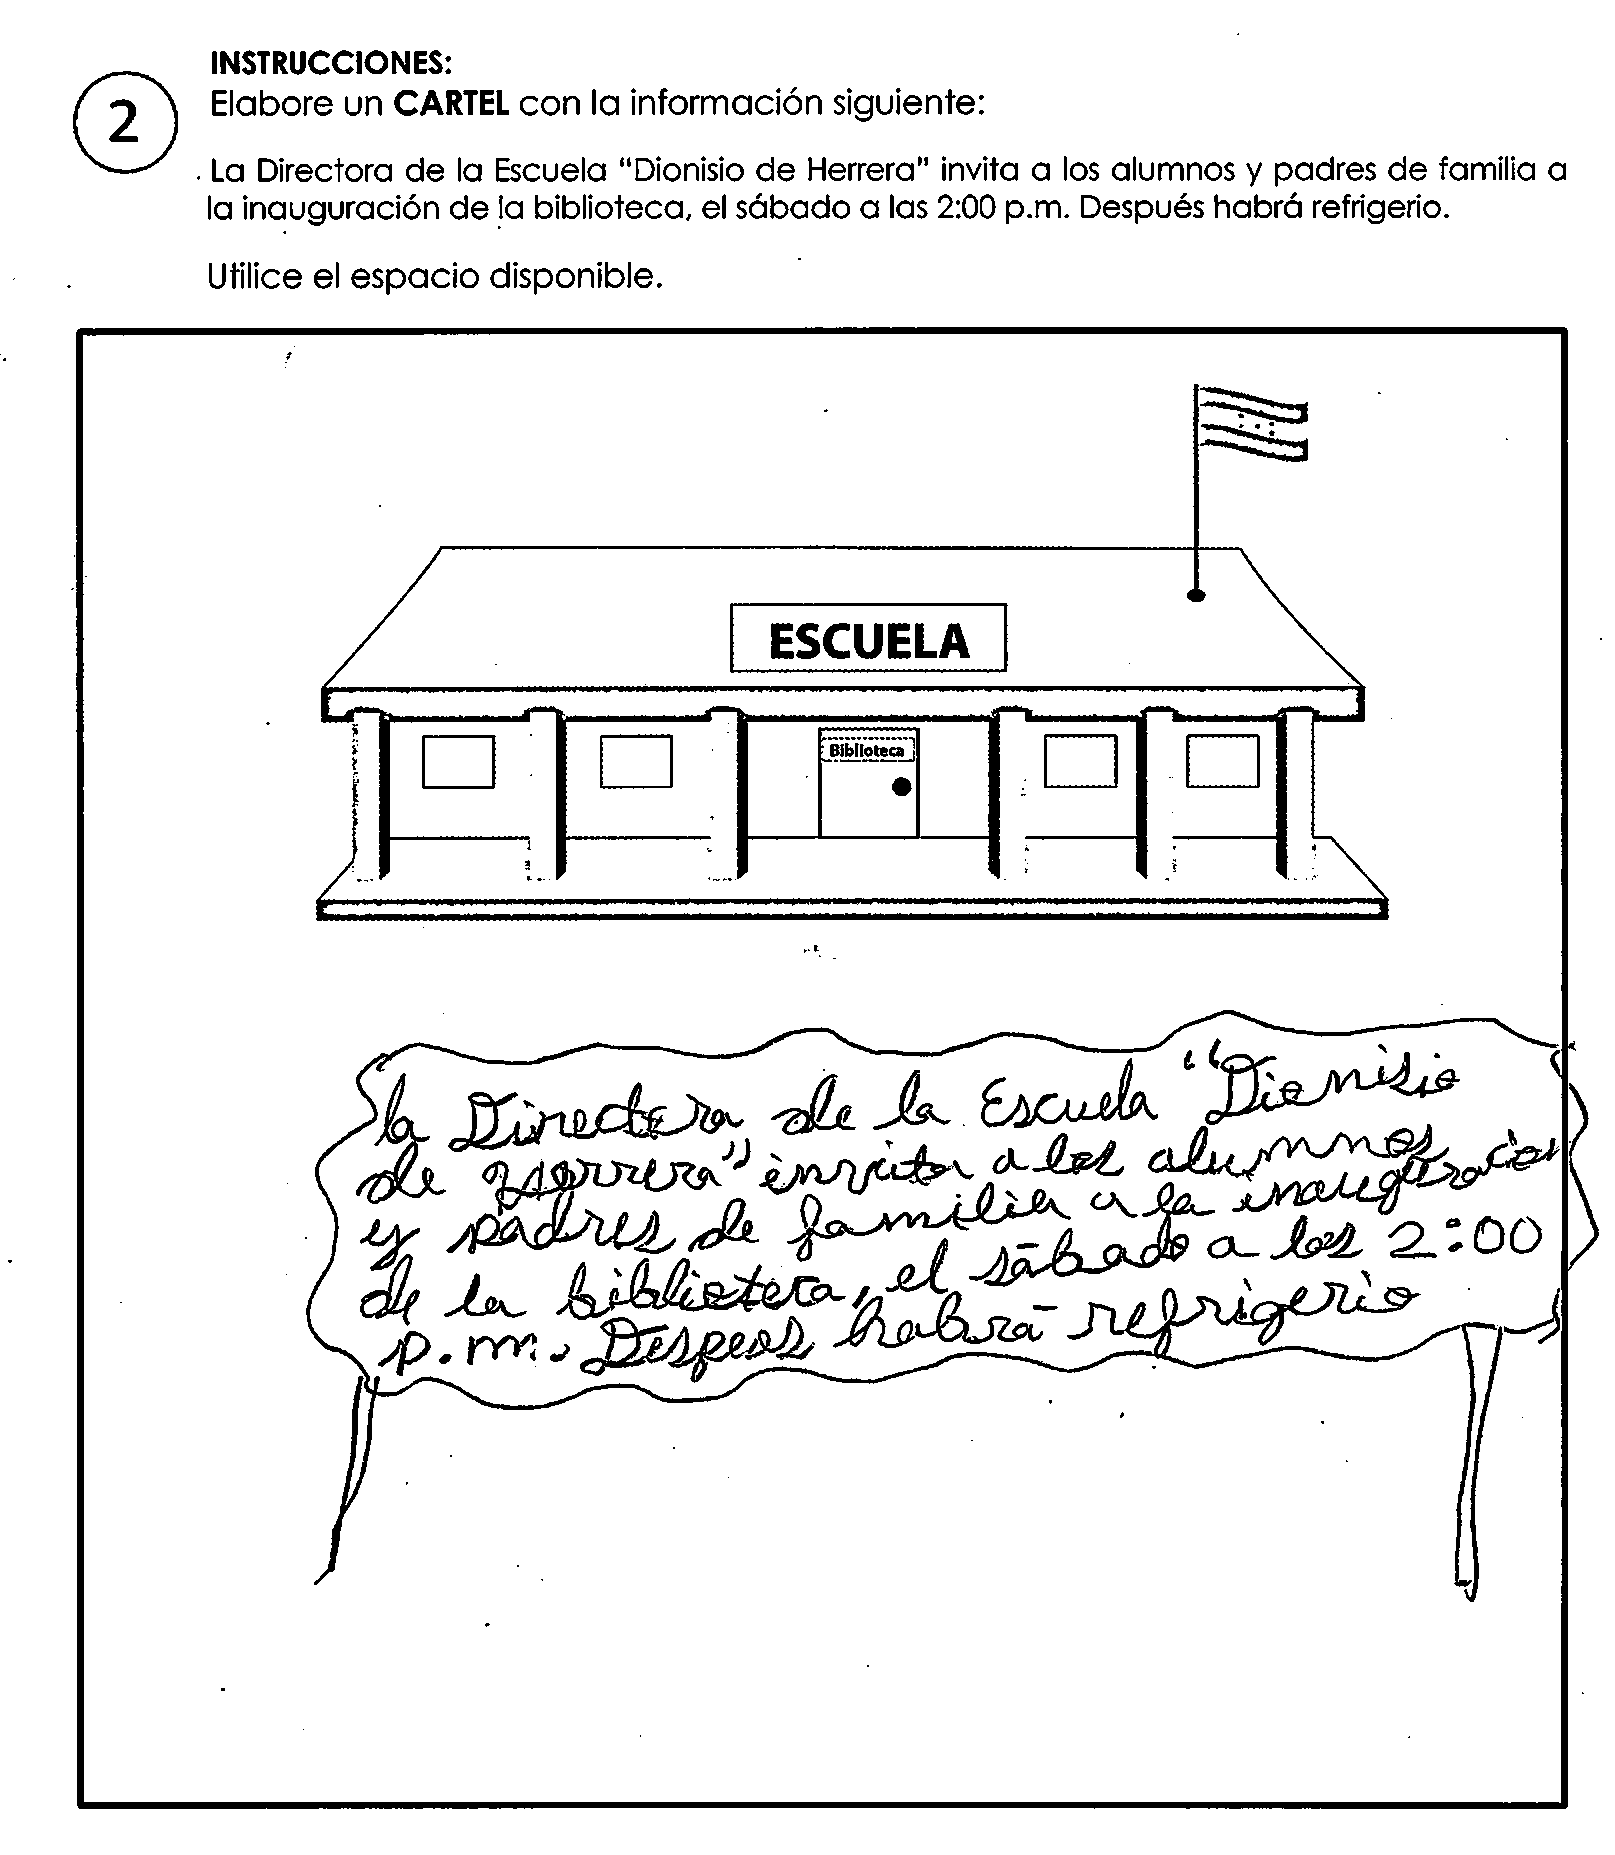 INSTRUCCIONES:
2
Elabore un CARTEL con la información siguiente:
La Directora de la Escuela “Dionisio de Herrera” invita a los alumnos y padres de familia a
la inauguración de la biblioteca, el sábado a las 2:00 p.m. Después habrá refrigerio.
Utilice el espacio disponible.
ESCUELA
Biblioteca
la Directora de la Escuela “Dionisio
de Herrera” invita a los alumnos
y padres de familia a la inauguracion
de la biblioteca, el sábado a las 2:00
p.m. Despues habrá refrigerio